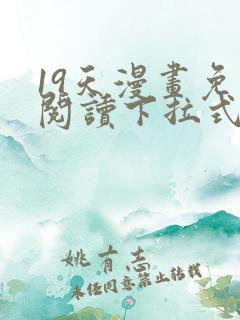 19天漫畫免
閱讀下拉式
姚有志
未经同意禁止转载